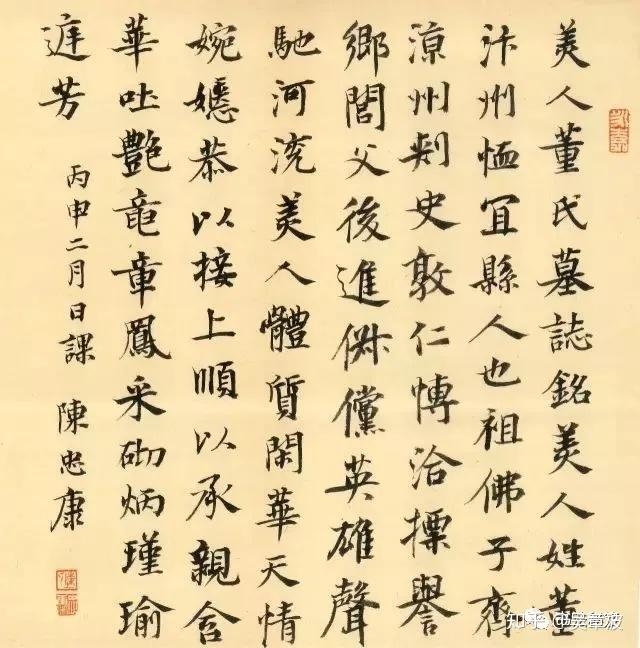 美人董氏墓誌銘美人姓董
汴州恤冝縣人也祖佛子齊
涼州刾史敦仁愽洽摽譽
鄉閭父後進俶儻英雄聲
馳河浣美人體質閑華天情
婉嫕恭以接上順以承親含
華吐艷竜章鳳采砌炳瑾瑜
庭芳 丙申二月日課 陳忠康
永嘉
知乎